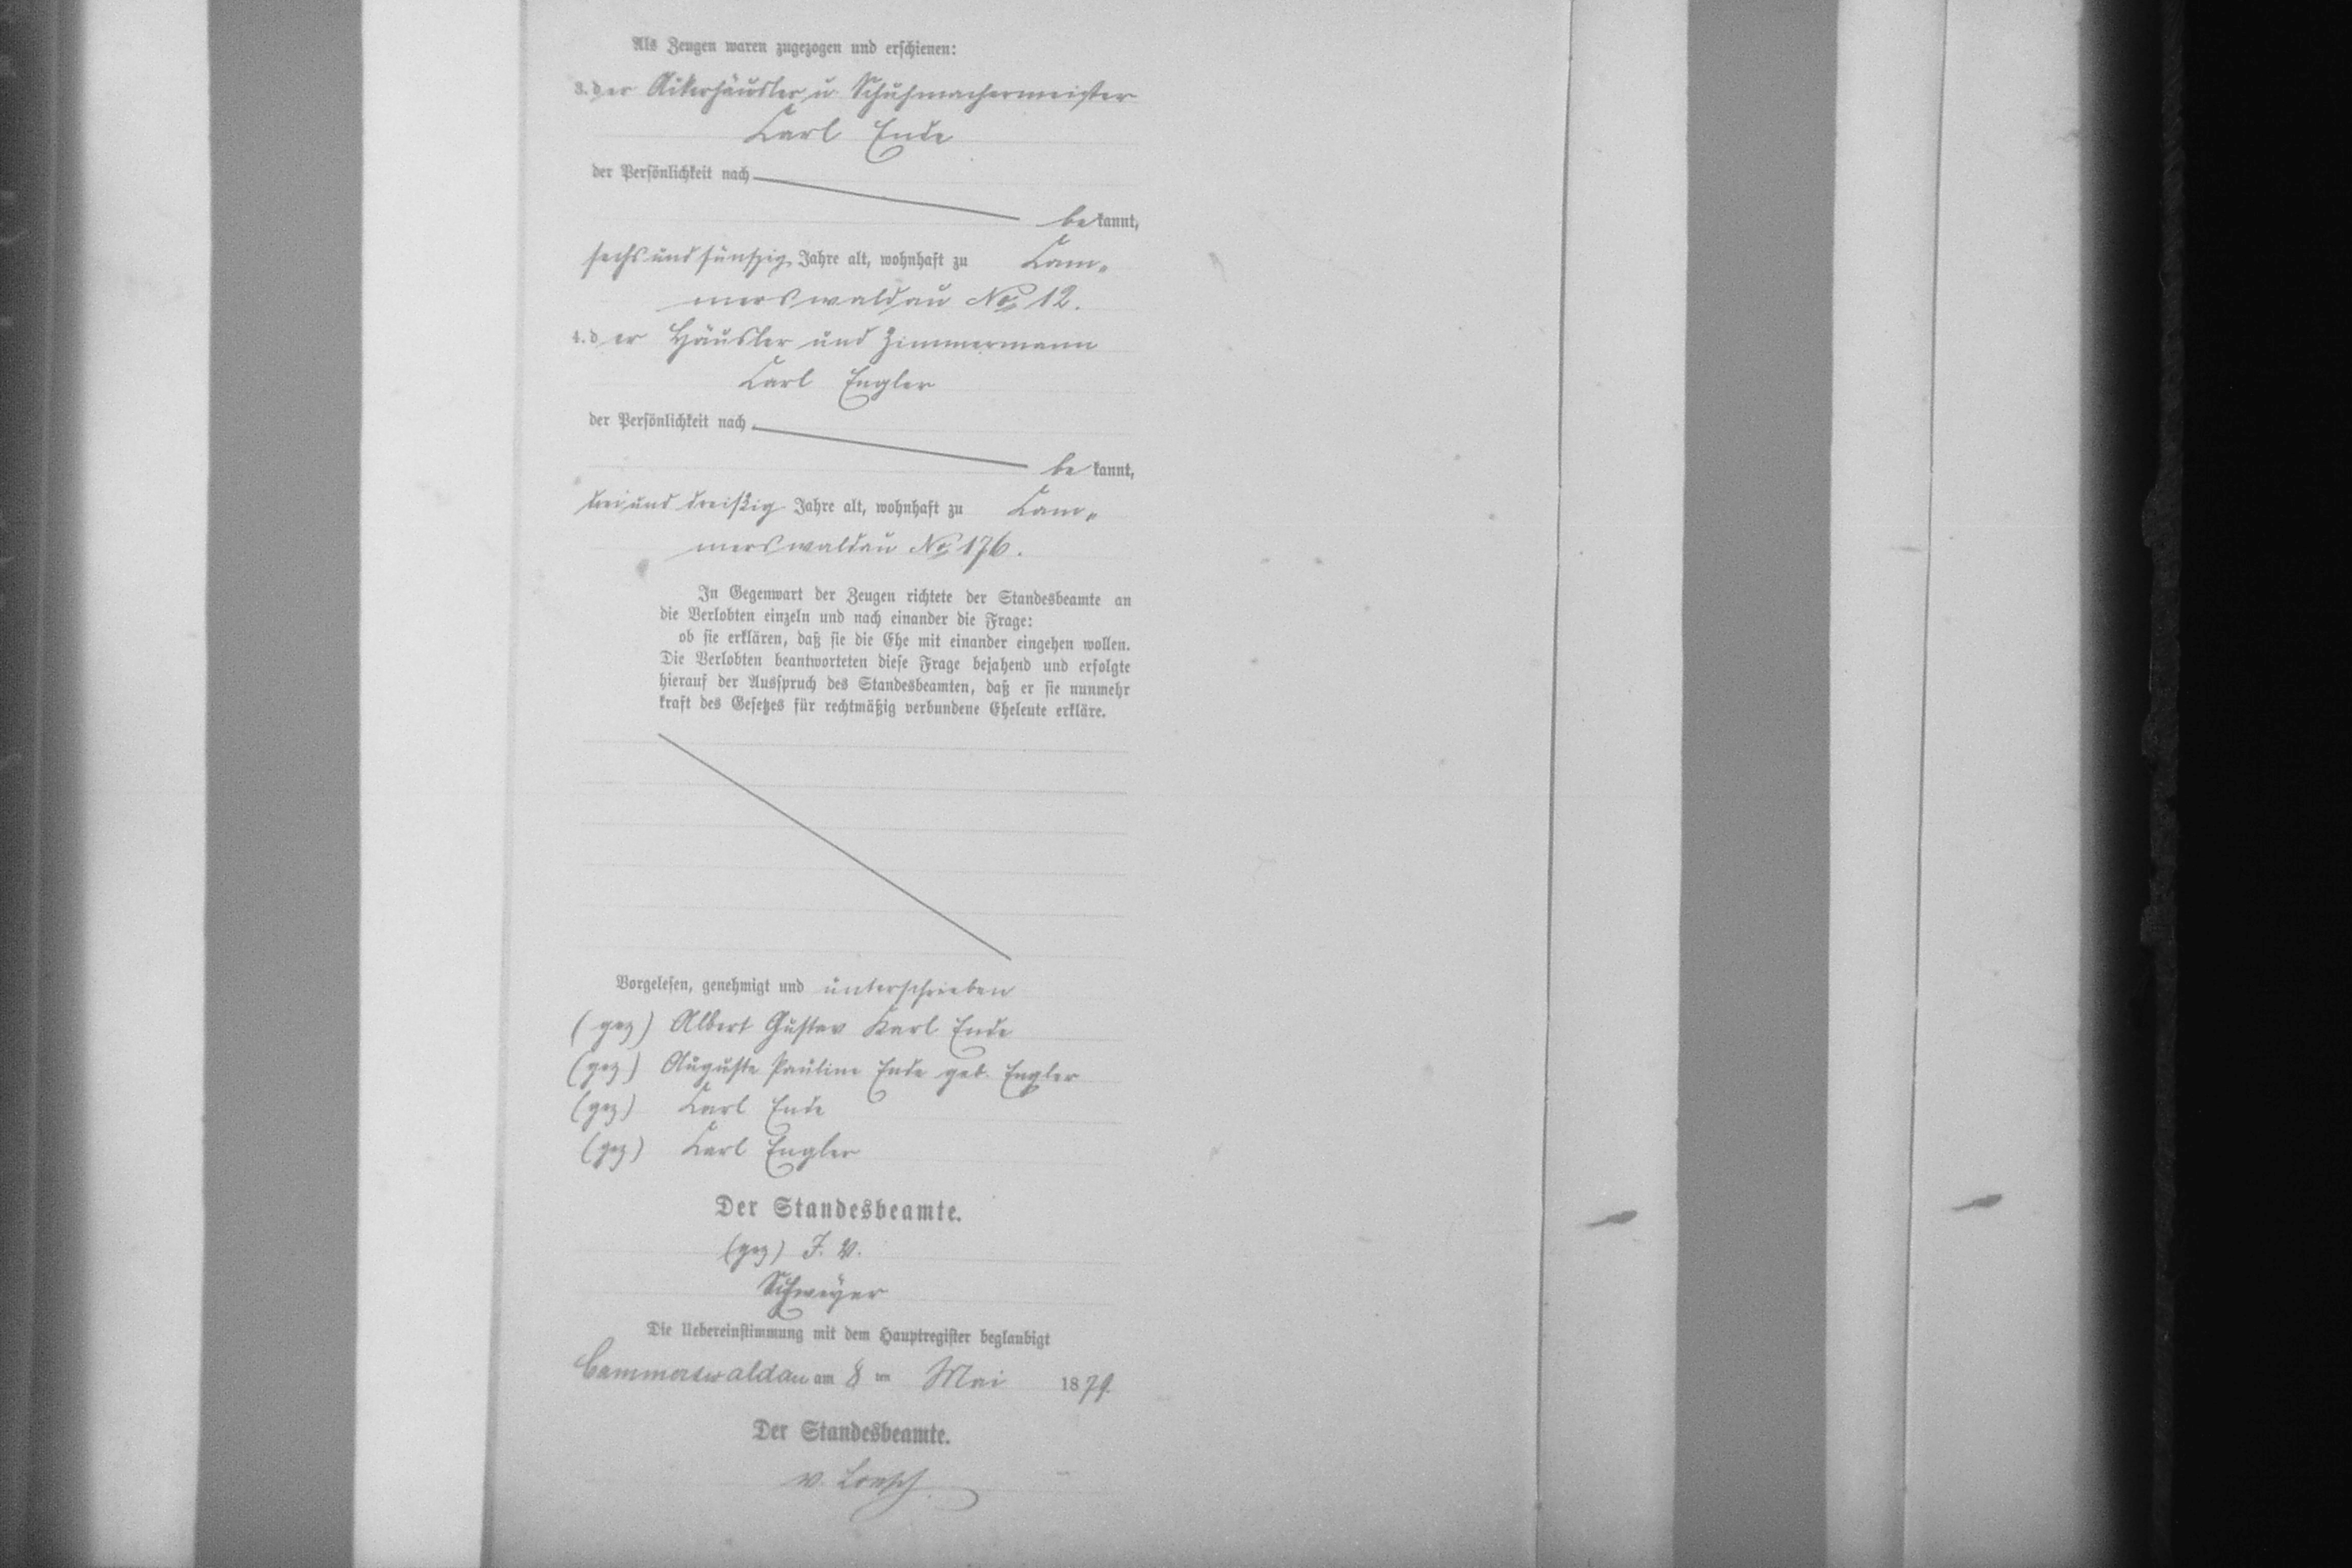 Als Zeugen waren zugezogen und erschienen:
3. der Ackerhäusler u Schuhmachermeister
Carl Ende
der Persönlichkeit nach
bekannt,
sechsundfünfzig Jahre alt, wohnhaft zu Cam„
merswaldau No 12.
4. der Häusler und Zimmermann
Carl Engler
der Persönlichkeit nach
bekannt,
dreiunddreißig Jahre alt, wohnhaft zu Cam„
merswaldau No 176.
In Gegenwart der Zeugen richtete der Standesbeamte an
die Verlobten einzeln und nach einander die Frage:
ob sie erklären, daß sie die Ehe mit einander eingehen wollen.
Die Verlobten beantworteten diese Frage bejahend und erfolgte
hierauf der Ausspruch des Standesbeamten, daß er sie nunmehr
kraft des Gesetzes für rechtmäßig verbundene Eheleute erkläre.
Vorgelesen, genehmigt und unterschrieben
(gez) Albert Gustav Karl Ende
(gez) Auguste Pauline Ende geb. Engler
(gez) Carl Ende
(gez) Carl Engler
Der Standesbeamte.
(gez) J. V.
Schweyer
Die Uebereinstimmung mit dem Hauptregister beglaubigt
Cammerswaldau am 8 ten Mai 1879.
Der Standesbeamte.
v. Loesch